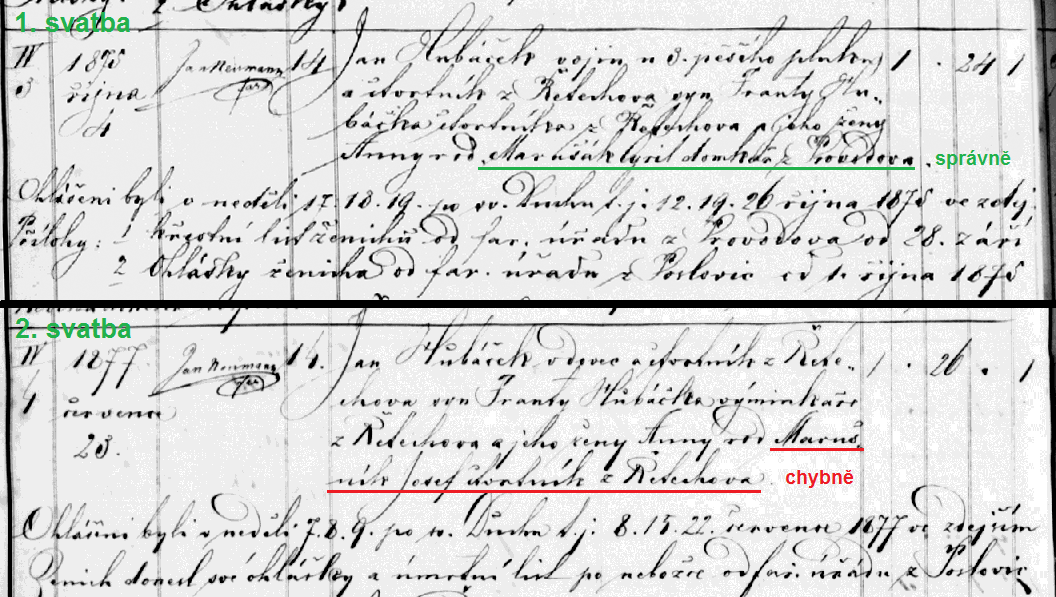 1. svatba
IV 1875 Jan Neumann 14 Jan Hubáček vojín u 3. pěšího pluku 1 . 24 1
3 října far a čtvrtník z Řetechova syn Franty Hu-
4 báčka čtvrtníka z Řetechova a jeho ženy
Anny rod. Marušák Cyril domkař z Provodova. správně
Ohlášeni byli v neděli 17. 18. 19. po sv. Duchu t. j. 12. 19. 26 října 1875 ve zdej.
Přílohy: 1 křestní list ženichů od far. úřadu z Provodova od 28. září
2 Ohlášky ženicha od far. úřadu z Poslovic od 1. října 1875
2. svatba
IV 1877 Jan Neumann 14. Jan Hubáček vdovec a čtvrtník z Řete- 1 . 26 . 1
4 července far chova syn Franty Hubáčka výminkáře
23. z Řetechova a jeho ženy Anny rod Maruš
ník Josef čtvrtník z Řetechova chybně
Ohlášeni byli v neděli 7. 8. 9. po sv. Duchu t. j. 8. 15. 22. července 1877 ve zdejším
Ženich donesl své ohlášky a úmrtní list po nebožce od far. úřadu z Poslovic